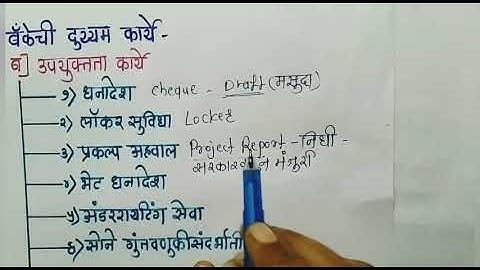 बँकेची दुय्यम कार्ये -
ब] उपयुक्तता कार्ये
१) धनादेश Cheque - Draft (मसुदा)
२) लॉकर सुविधा Locker
३) प्रकल्प अहवाल Project Report - निधी =
मंजुरी
४) भेट धनादेश
५) अंडररायटिंग सेवा
६) सोने गुंतवणुकीसंदर्भाती